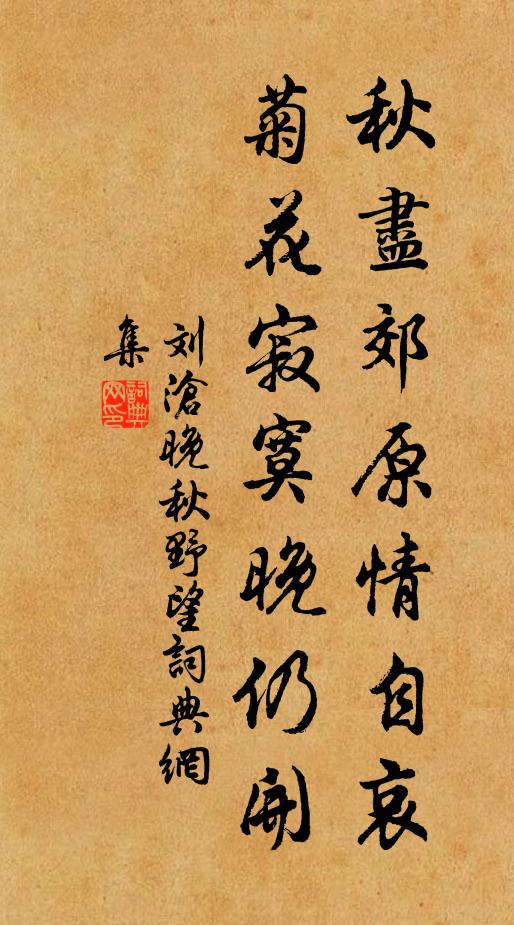 秋盡郊原情自哀
菊花寂寞晚仍開
刘滄晚秋野望詞典網
集
詞典
网印